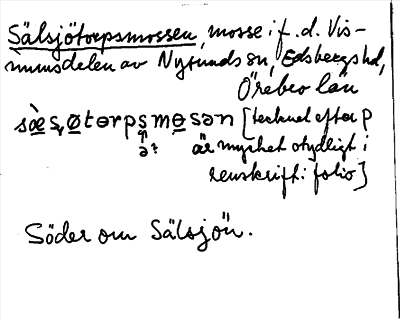 Sälsjötorpsmossen, mosse i f.d. Vis-
numsdelen av Nysunds sn, Edsbergs hd,
Örebro län
sæ̀s,øtɵrpsmɵsən [tecknet efter p
ə? är mycket otydligt i
renskrift i folio]
Söder om Sälsjön.